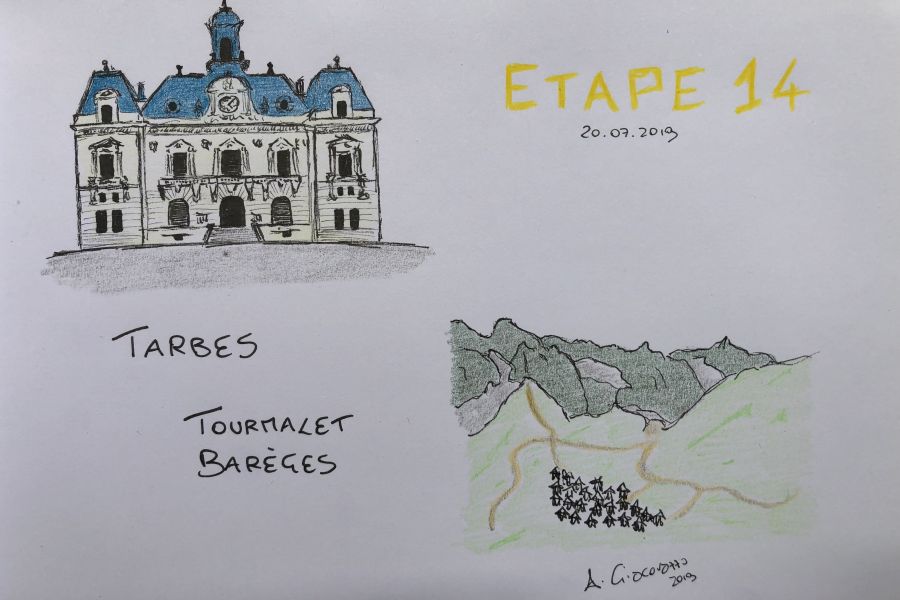 ETAPE 14
20.07.2019
TARBES
TOURMALET
BARÈGES
A.
2019